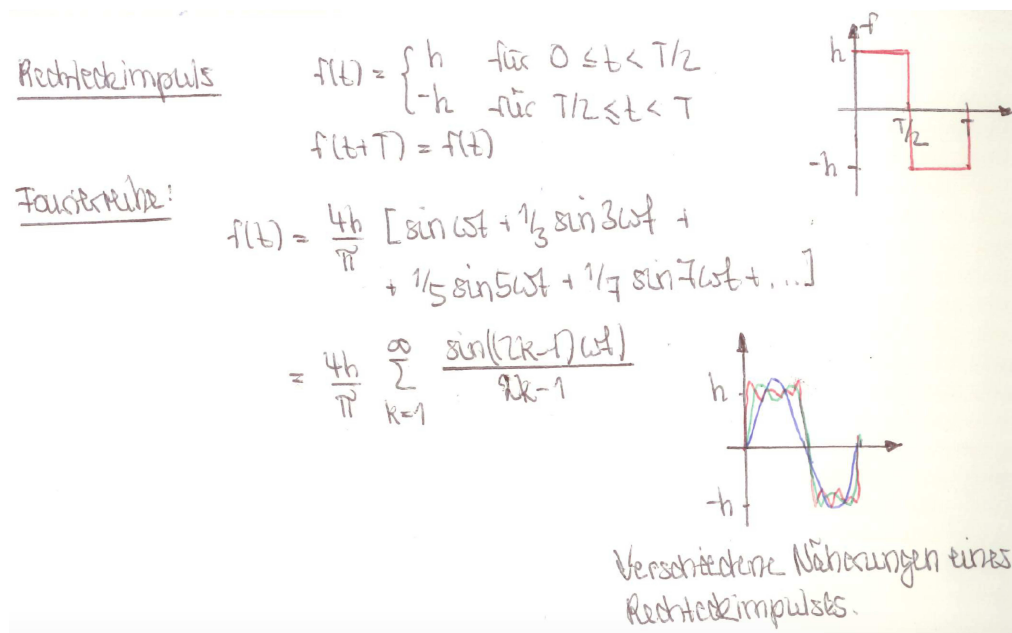 Rechteckimpuls
f(t) = { h für 0 ≤ t < T/2
-h für T/2 ≤ t < T
f(t+T) = f(t)
f
h
T/2
T
-h
Fourierreihe:
f(t) = 4h/π [sin ωt + 1/3 sin 3ωt +
+ 1/5 sin 5ωt + 1/7 sin 7ωt + ...]
= 4h/π ∑_{k=1}^{∞} sin((2k-1)ωt) / 2k-1
h
-h
Verschiedene Näherungen eines
Rechteckimpulses.